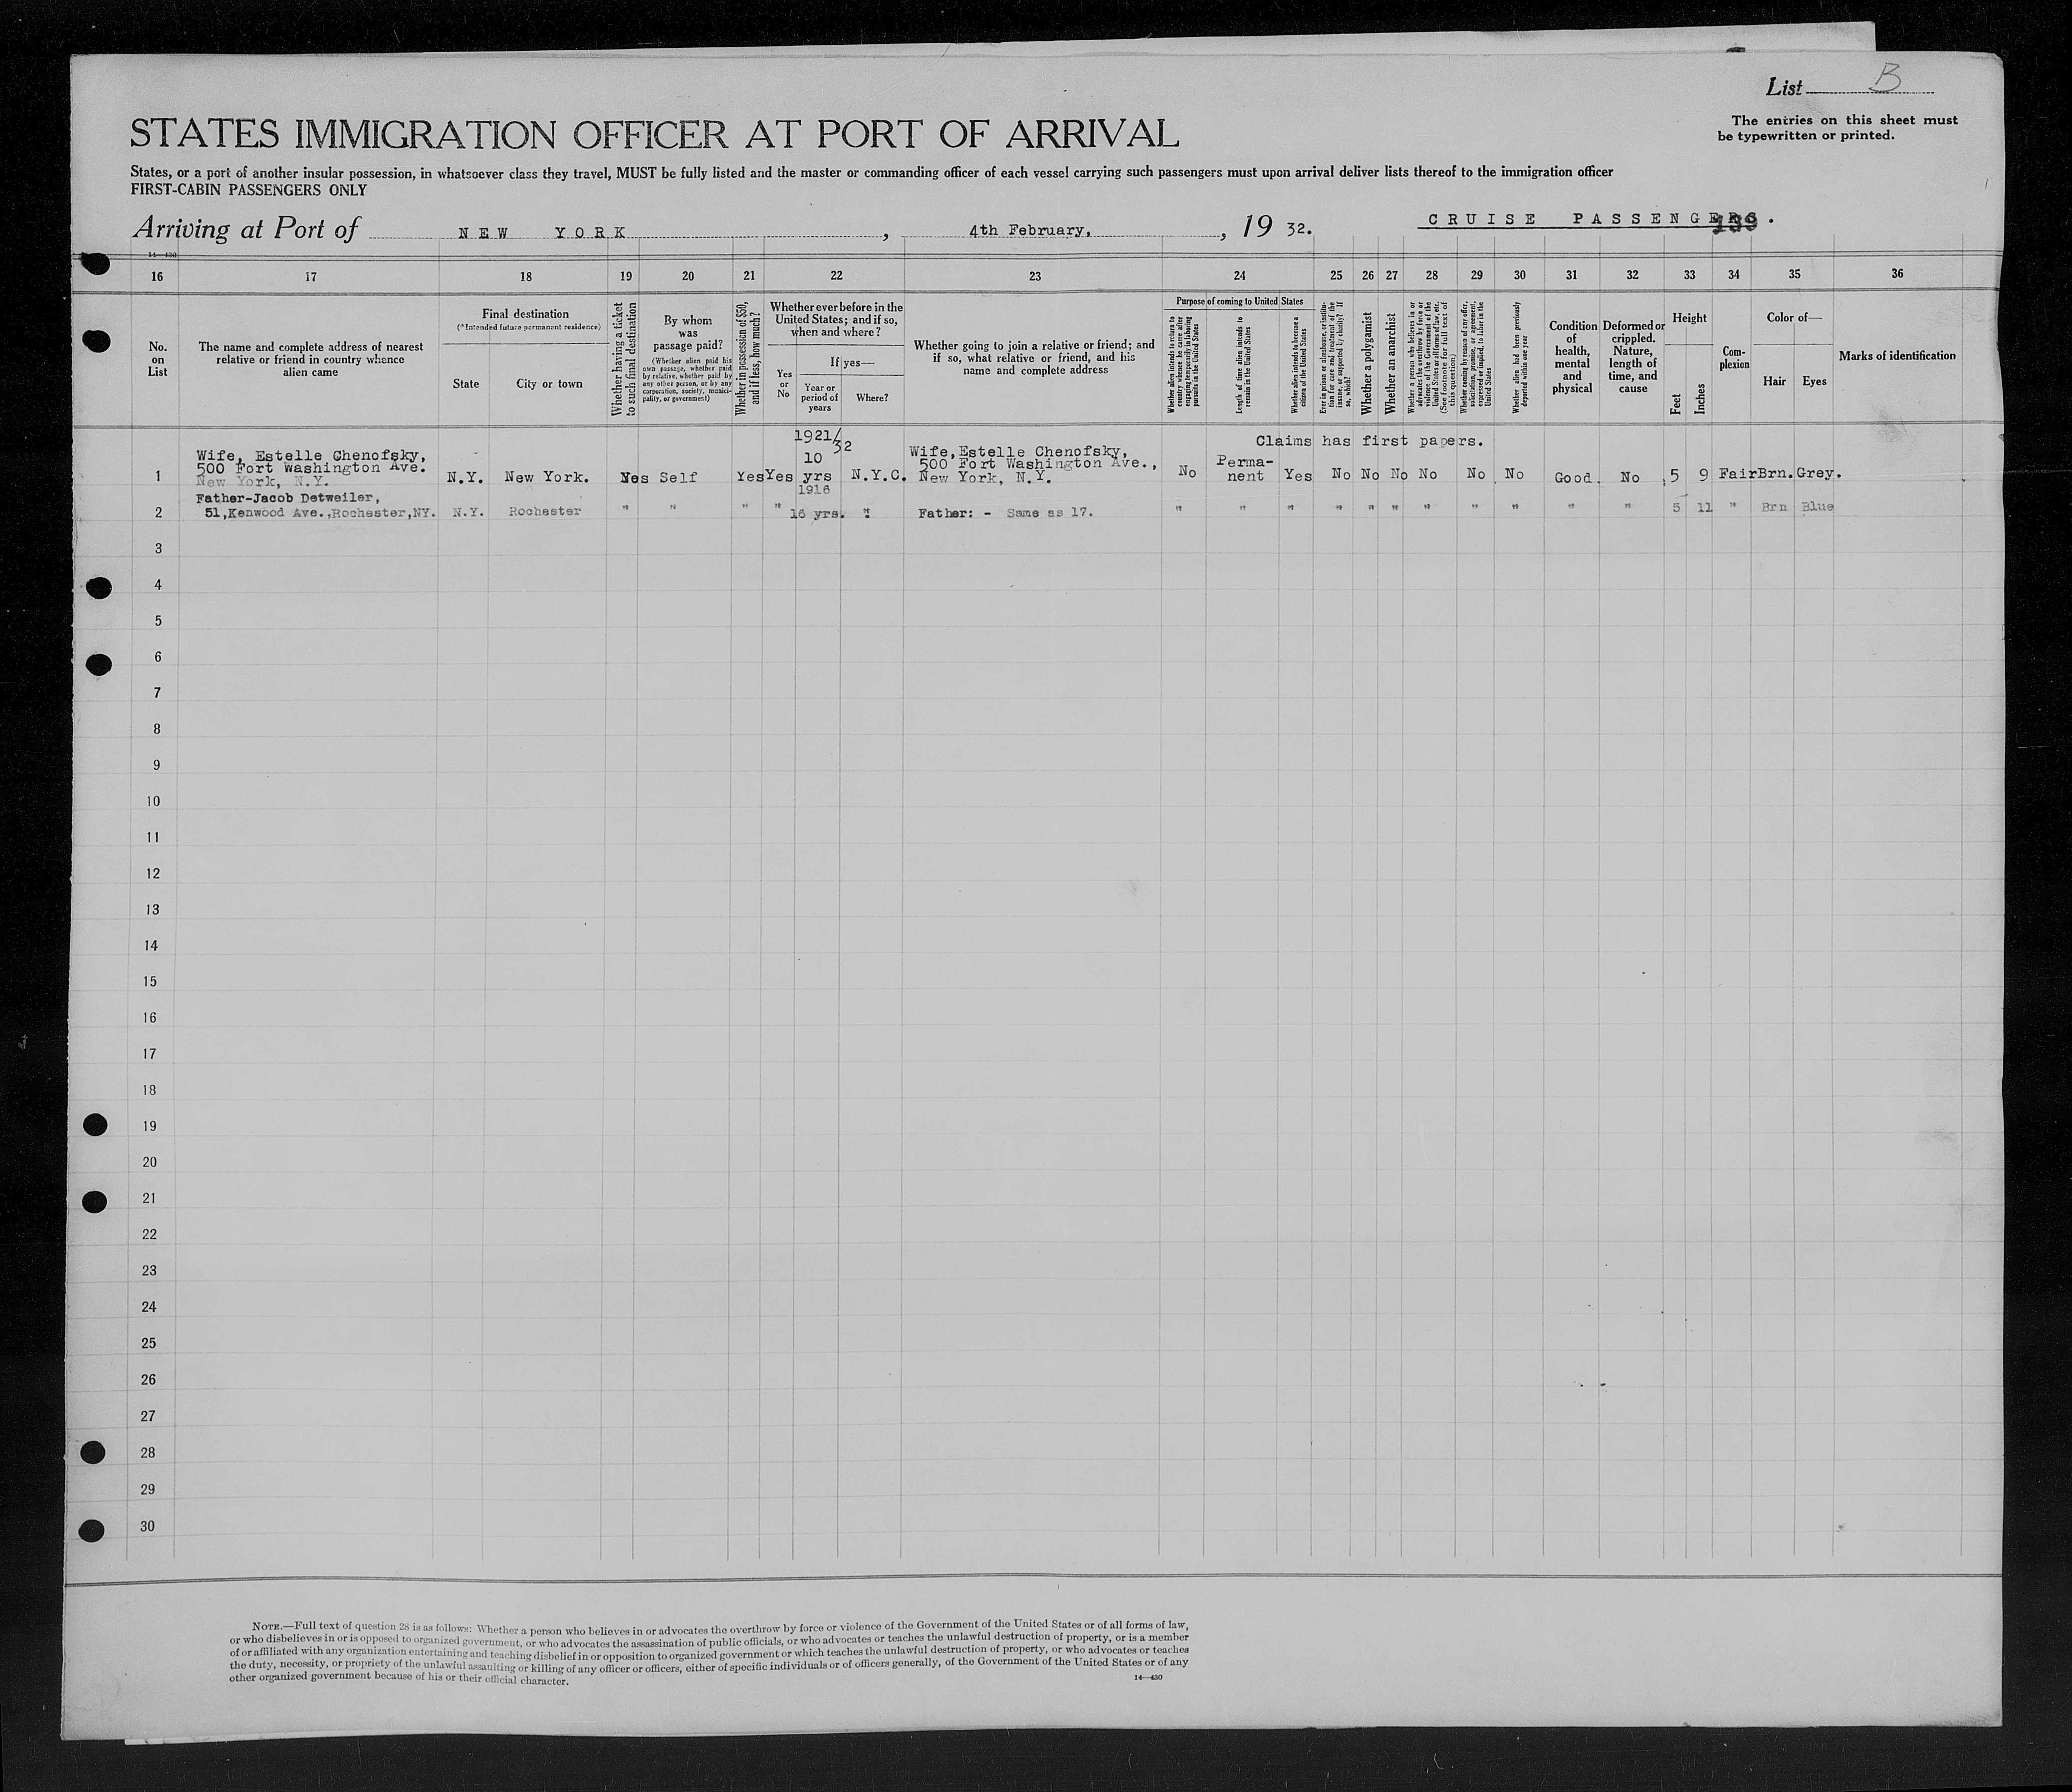 List B
The entries on this sheet must
be typewritten or printed.
STATES IMMIGRATION OFFICER AT PORT OF ARRIVAL
States, or a port of another insular possession, in whatsoever class they travel, MUST be fully listed and the master or commanding officer of each vessel carrying such passengers must upon arrival deliver lists thereof to the immigration officer
FIRST-CABIN PASSENGERS ONLY
Arriving at Port of NEW YORK, 4th February, , 19 32. CRUISE PASSENGERS.
139
14—430
16 17 18 19 20 21 22 23 24 25 26 27 28 29 30 31 32 33 34 35 36
No.
on
List
The name and complete address of nearest
relative or friend in country whence
alien came
Final destination
(*Intended future permanent residence)
State
City or town
Whether having a ticket
to such final destination
By whom
was
passage paid?
(Whether alien paid his
own passage, whether paid
by relative, whether paid by
any other person, or by any
corporation, society, munici-
pality, or government)
Whether in possession of $50,
and if less, how much?
Whether ever before in the
United States; and if so,
when and where?
Yes
or
No
If yes—
Year or
period of
years
Where?
Whether going to join a relative or friend; and
if so, what relative or friend, and his
name and complete address
Purpose of coming to United States
Whether alien intends to return to
country whence he came after
engaging temporarily in laboring
pursuits in the United States
Length of time alien intends to
remain in the United States
Whether alien intends to become a
citizen of the United States
Ever in prison or almshouse, or institu-
tion for care and treatment of the
insane, or supported by charity? If
so, which?
Whether a polygamist
Whether an anarchist
Whether a person who believes in or
advocates the overthrow by force or
violence of the Government of the
United States or all forms of law, etc.
(See footnote for full text of
this question)
Whether coming by reason of any offer,
solicitation, promise, or agreement,
expressed or implied, to labor in the
United States
Whether alien had been previously
deported within one year
Condition
of
health,
mental
and
physical
Deformed or
crippled.
Nature,
length of
time, and
cause
Height
Feet
Inches
Com-
plexion
Color of—
Hair
Eyes
Marks of identification
1 Wife, Estelle Chenofsky,
500 Fort Washington Ave.
New York, N.Y.
N.Y. New York. Yes Self Yes Yes
1921/
32
10
yrs
N.Y.C.
Wife, Estelle Chenofsky,
500 Fort Washington Ave.,
New York, N.Y.
Claims has first papers.
No
Perma-
nent
Yes No No No No No No Good. No 5 9 Fair Brn. Grey.
2 Father-Jacob Detweiler,
51,Kenwood Ave.,Rochester,NY.
N.Y. Rochester " " " "
1916
16 yrs. "
Father: - Same as 17. " " " " " " " " " " " 5 11 " Brn Blue
3
4
5
6
7
8
9
10
11
12
13
14
15
16
17
18
19
20
21
22
23
24
25
26
27
28
29
30
NOTE.—Full text of question 28 is as follows: Whether a person who believes in or advocates the overthrow by force or violence of the Government of the United States or of all forms of law,
or who disbelieves in or is opposed to organized government, or who advocates the assassination of public officials, or who advocates or teaches the unlawful destruction of property, or is a member
of or affiliated with any organization entertaining and teaching disbelief in or opposition to organized government or which teaches the unlawful destruction of property, or who advocates or teaches
the duty, necessity, or propriety of the unlawful assaulting or killing of any officer or officers, either of specific individuals or of officers generally, of the Government of the United States or of any
other organized government because of his or their official character.
14—430